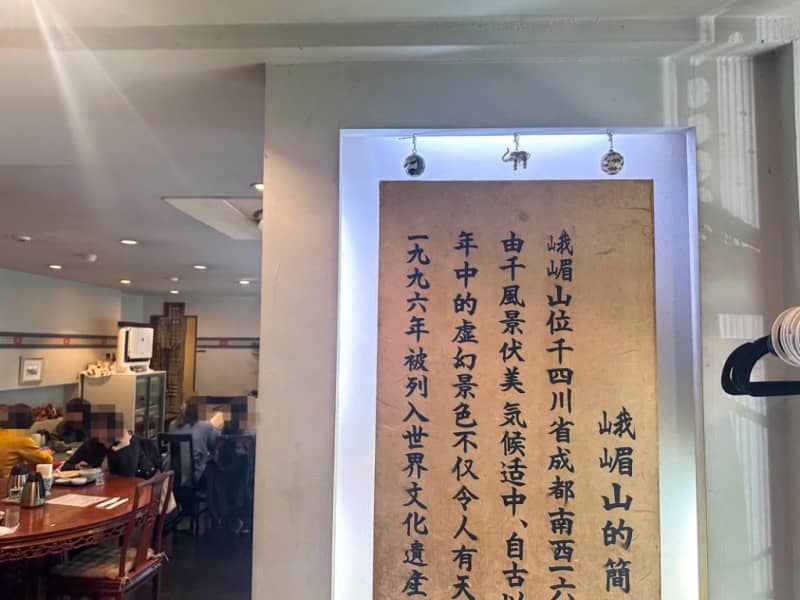 峨嵋山的簡
峨嵋山位千四川省成都南西一六
由千風景伏美气候适中、自古以
年中的虚幻景色不仅令人有天
一九九六年被列入世界文化遺産